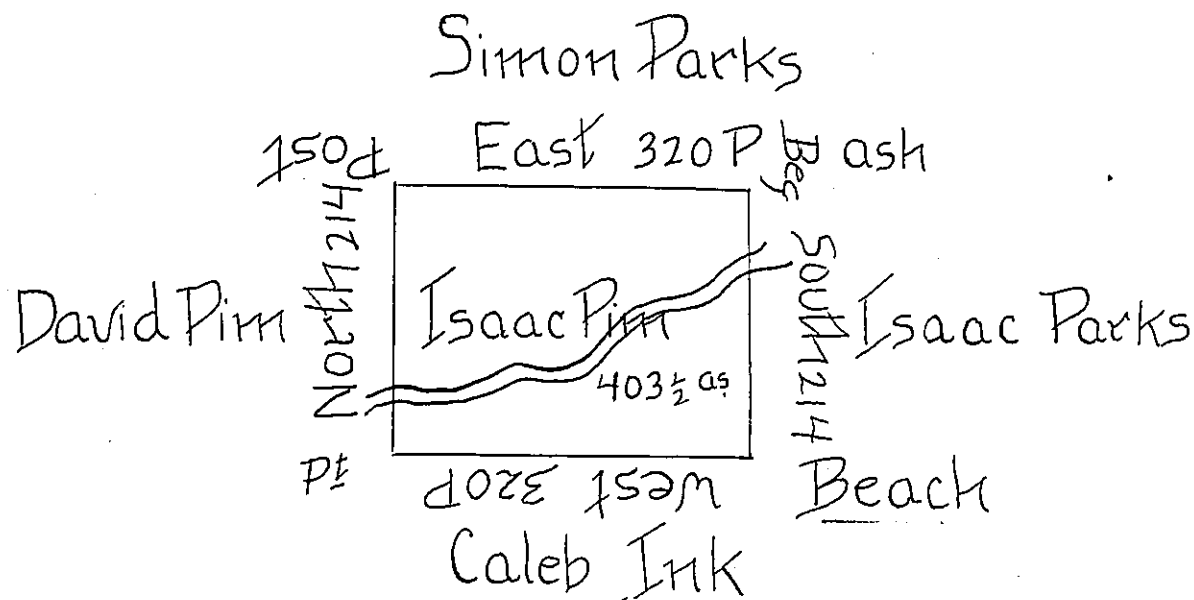 Simon Parks
Post East 320P Beg ash
North 214
David Pim
Isaac Pim
South 214
Isaac Parks
403 1/2 as
Pt West 320P Beach
Caleb Ink